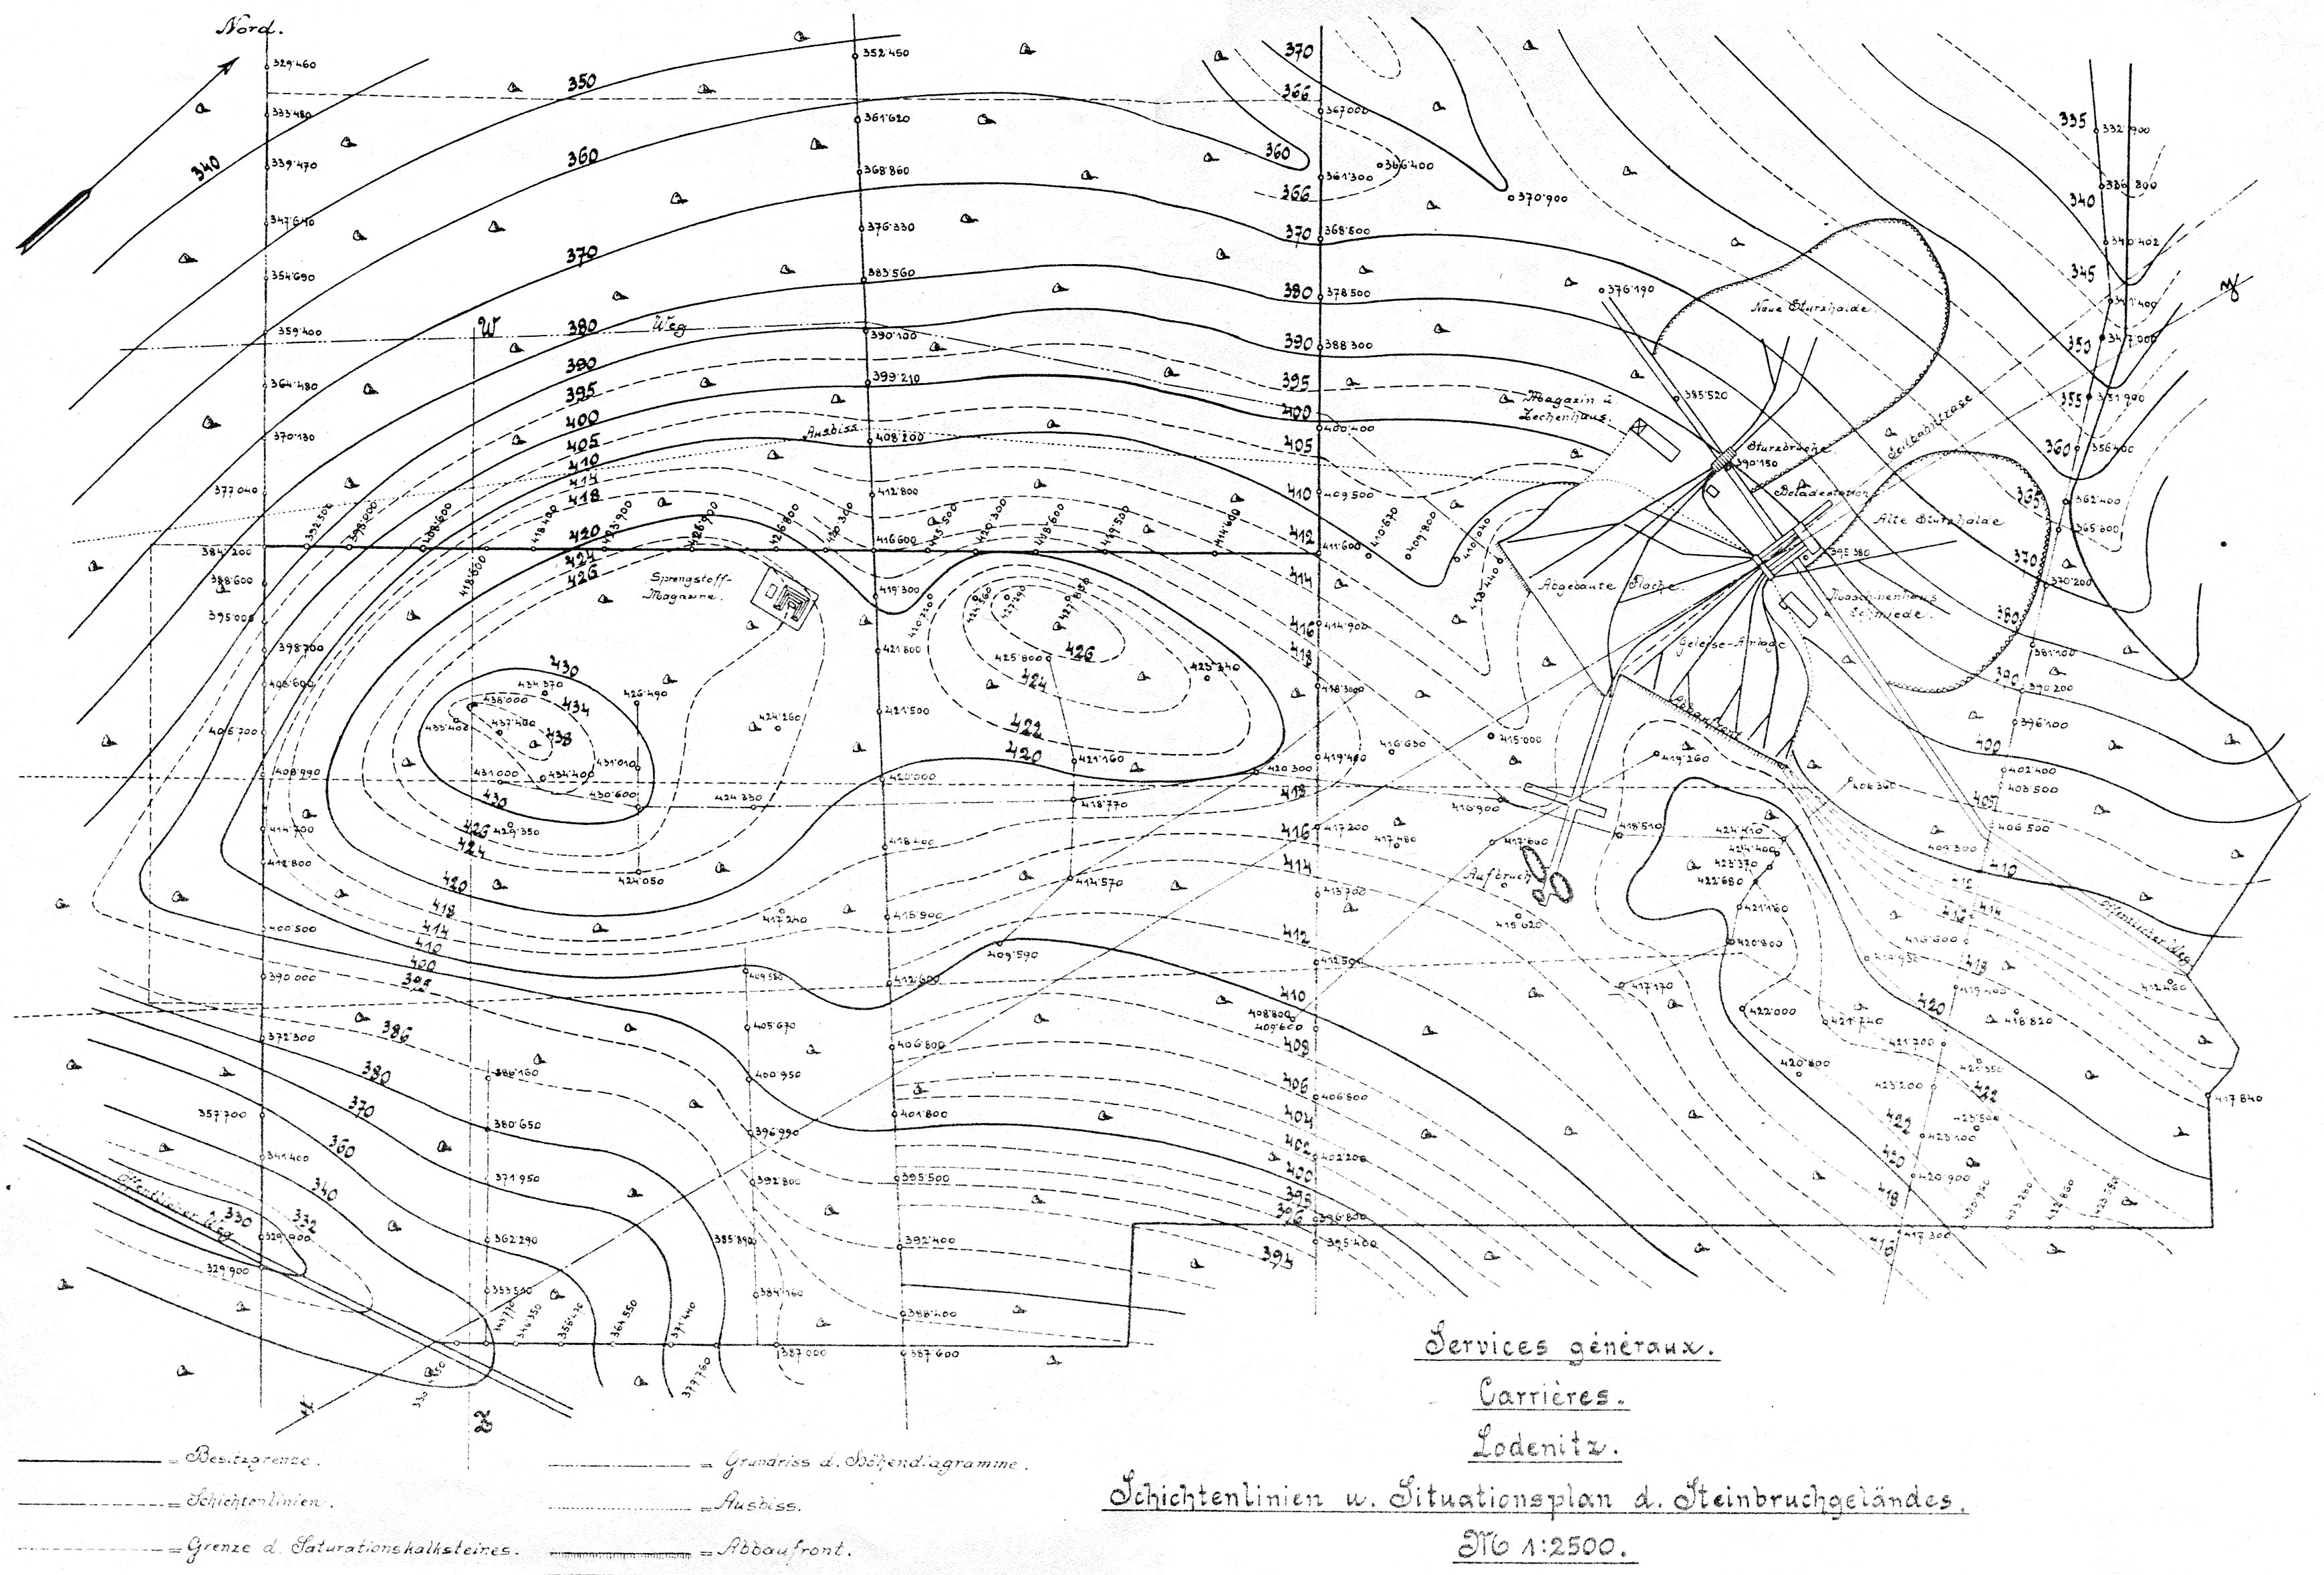 Nord.
329'460
352'450
350
370
366
367'000
333'480
361'620
335
332'900
340
339'470
360
368'860
360
361'300
366'400
366
370'900
336'800
340
347'640
370
376'330
370
368'600
340'402
354'690
383'560
380
378'500
376'190
345
Neue Sturzhalde.
359'400
W
380
Weg
390'100
390
388'300
350
347'000
390
395
364'480
399'210
395
385'520
355
351'900
Magazin u
Zechenhaus.
400
400
400'400
405
Ausbiss
408'200
405
Seilbahntrase
370'130
410
Sturzbrücke
390'150
360
356'400
414
377'040
418
412'800
410
409'500
Beladestation
365
362'400
Alte Sturzhalde
420
384'200
416'600
412
411'600
395'380
365'300
424
426
388'600
Sprengstoff-
Magazine.
419'300
414
Abgebaute Fläche.
370
370'200
Maschinenhaus
u Schmiede.
395'000
416
414'900
380
398'700
421'800
425'800
426
418
Geleise-Anlage
381'100
430
434'370
426'490
424
423'240
418'300
390
390'200
438'000
434
437'400
438
424'260
421'500
422
Abbaufront
396'100
405'700
420
421'160
419'400
416'630
415'000
419'260
400
408'990
431'000
434'400
431'010
420'000
420'300
402'400
403'500
430
430'600
424'330
418'770
418
416'900
404'360
405
414'700
426
429'350
418'400
416
417'200
417'480
417'660
418'510
424'410
406'500
424
424'400
409'300
412'800
420
424'050
414'570
414
Aufbruch
423'370
422'680
410
418
417'240
415'900
413'700
415'620
421'160
414
Öffentlicher Weg
400'500
414
410
409'590
412
420'800
416'600
400
395
409'580
412'600
412'500
418
390'000
410
417'170
419'400
412'460
386
405'670
408'800
409'600
422'000
421'740
420
418'820
372'300
406'800
408
421'700
380
386'160
400'950
406
406'800
420'800
423'200
421'350
422
417'840
370
357'700
380'650
401'800
404
423'500
360
396'990
402
402'200
422
423'100
341'400
371'950
392'800
395'500
400
420
420'900
340
398
418
Öffentlicher Weg
330
332
396
396'800
329'900
362'290
385'890
392'400
394
395'400
416
417'300
329'900
353'510
384'160
388'400
387'000
387'600
Z
Services généraux.
Carrières.
Lodenitz.
Schichtenlinien u. Situationsplan d. Steinbruchgeländes.
M 1:2500.
= Besitzgrenze.
= Grundriss d. Höhendiagramme.
= Schichtenlinien.
= Ausbiss.
= Grenze d. Saturationskalksteines.
= Abbaufront.